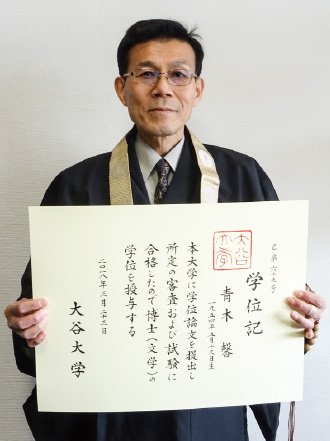 乙第六十九号
学位記
大谷大学
青木馨
一九五四年五月十九日生
本大学に学位論文を提出し
所定の審査および試験に
合格したので博士(文学)の
学位を授与する
二〇一八年三月二十三日
大谷大学